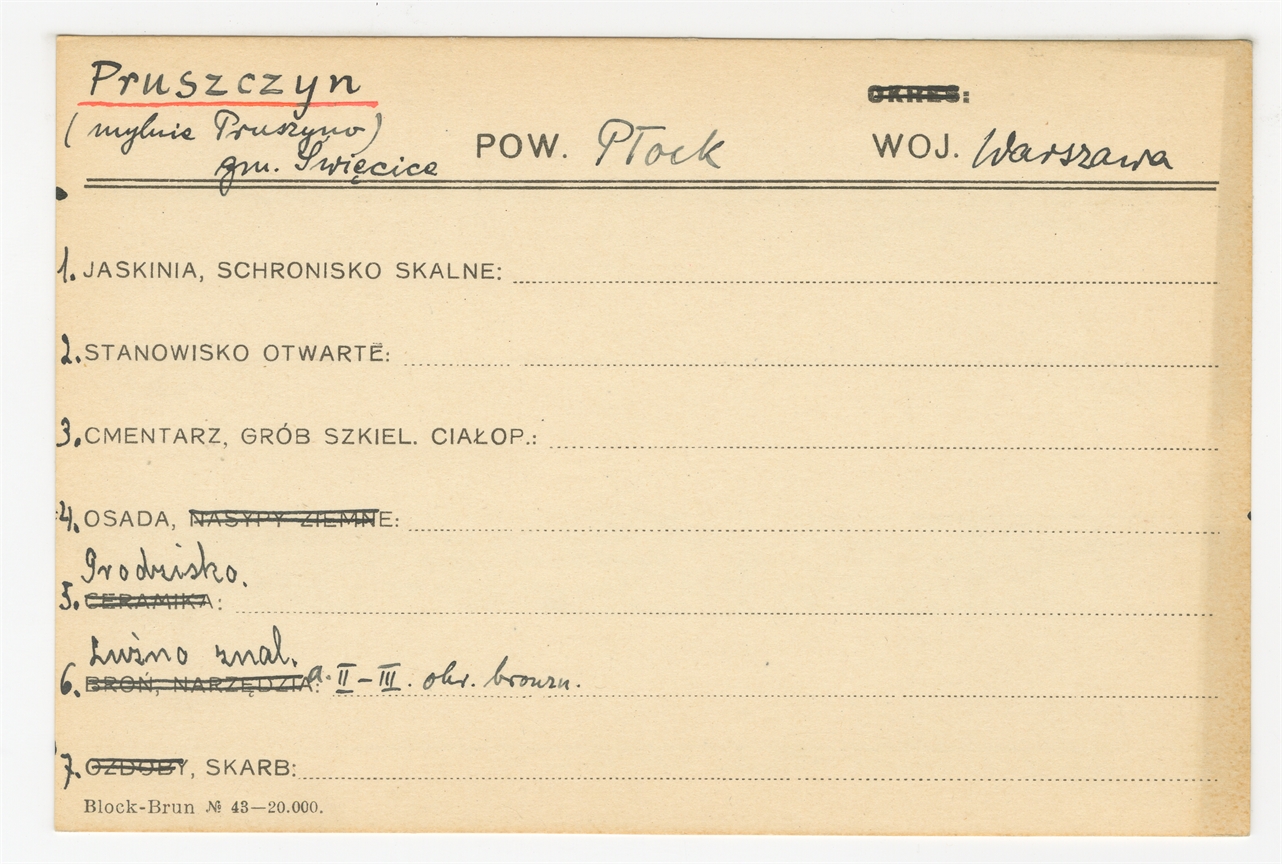 Pruszczyn
OKRES:
(mylnie Pruszyno)
gm. Święcice POW. Płock WOJ. Warszawa
1. JASKINIA, SCHRONISKO SKALNE:
2. STANOWISKO OTWARTE:
3. CMENTARZ, GRÓB SZKIEL. CIAŁOP.:
4. OSADA, NASYPY ZIEMNE:
Grodzisko.
5. CERAMIKA:
Luźno znal.
6. BROŃ, NARZĘDZIA: a. II–III. okr. bronzu.
7. OZDOBY, SKARB:
Block-Brun № 43—20.000.